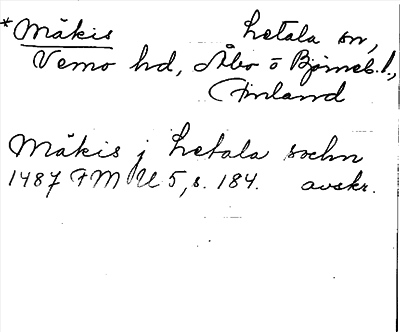 *Mäkis Letala sn,
Vemo hd, Åbo o Björneb. l.,
Finland
Mäkis j Letala sochn
1487 FMU 5, s. 184. avskr.